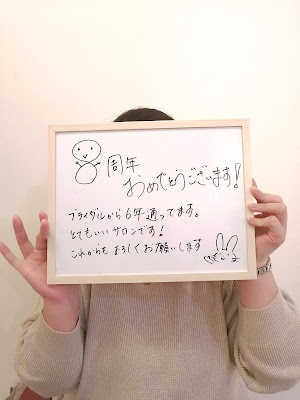 8周年
おめでとうございます!
ブライダルから6年通ってます。
とてもいいサロンです!
これからもよろしくお願いします